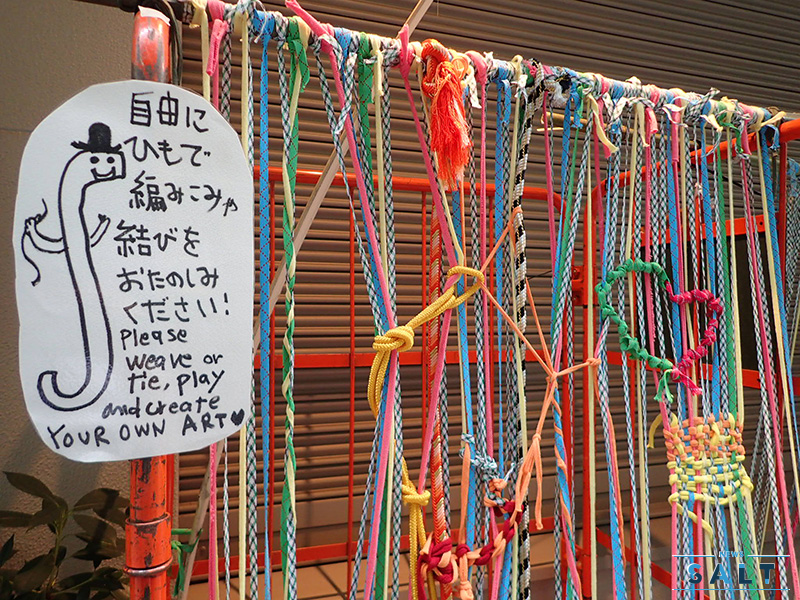 自由に
ひもで
編みこみや
結びを
おたのしみ
ください!
Please
weave or
tie, play
and create
YOUR OWN ART♥
NEWS
SALT